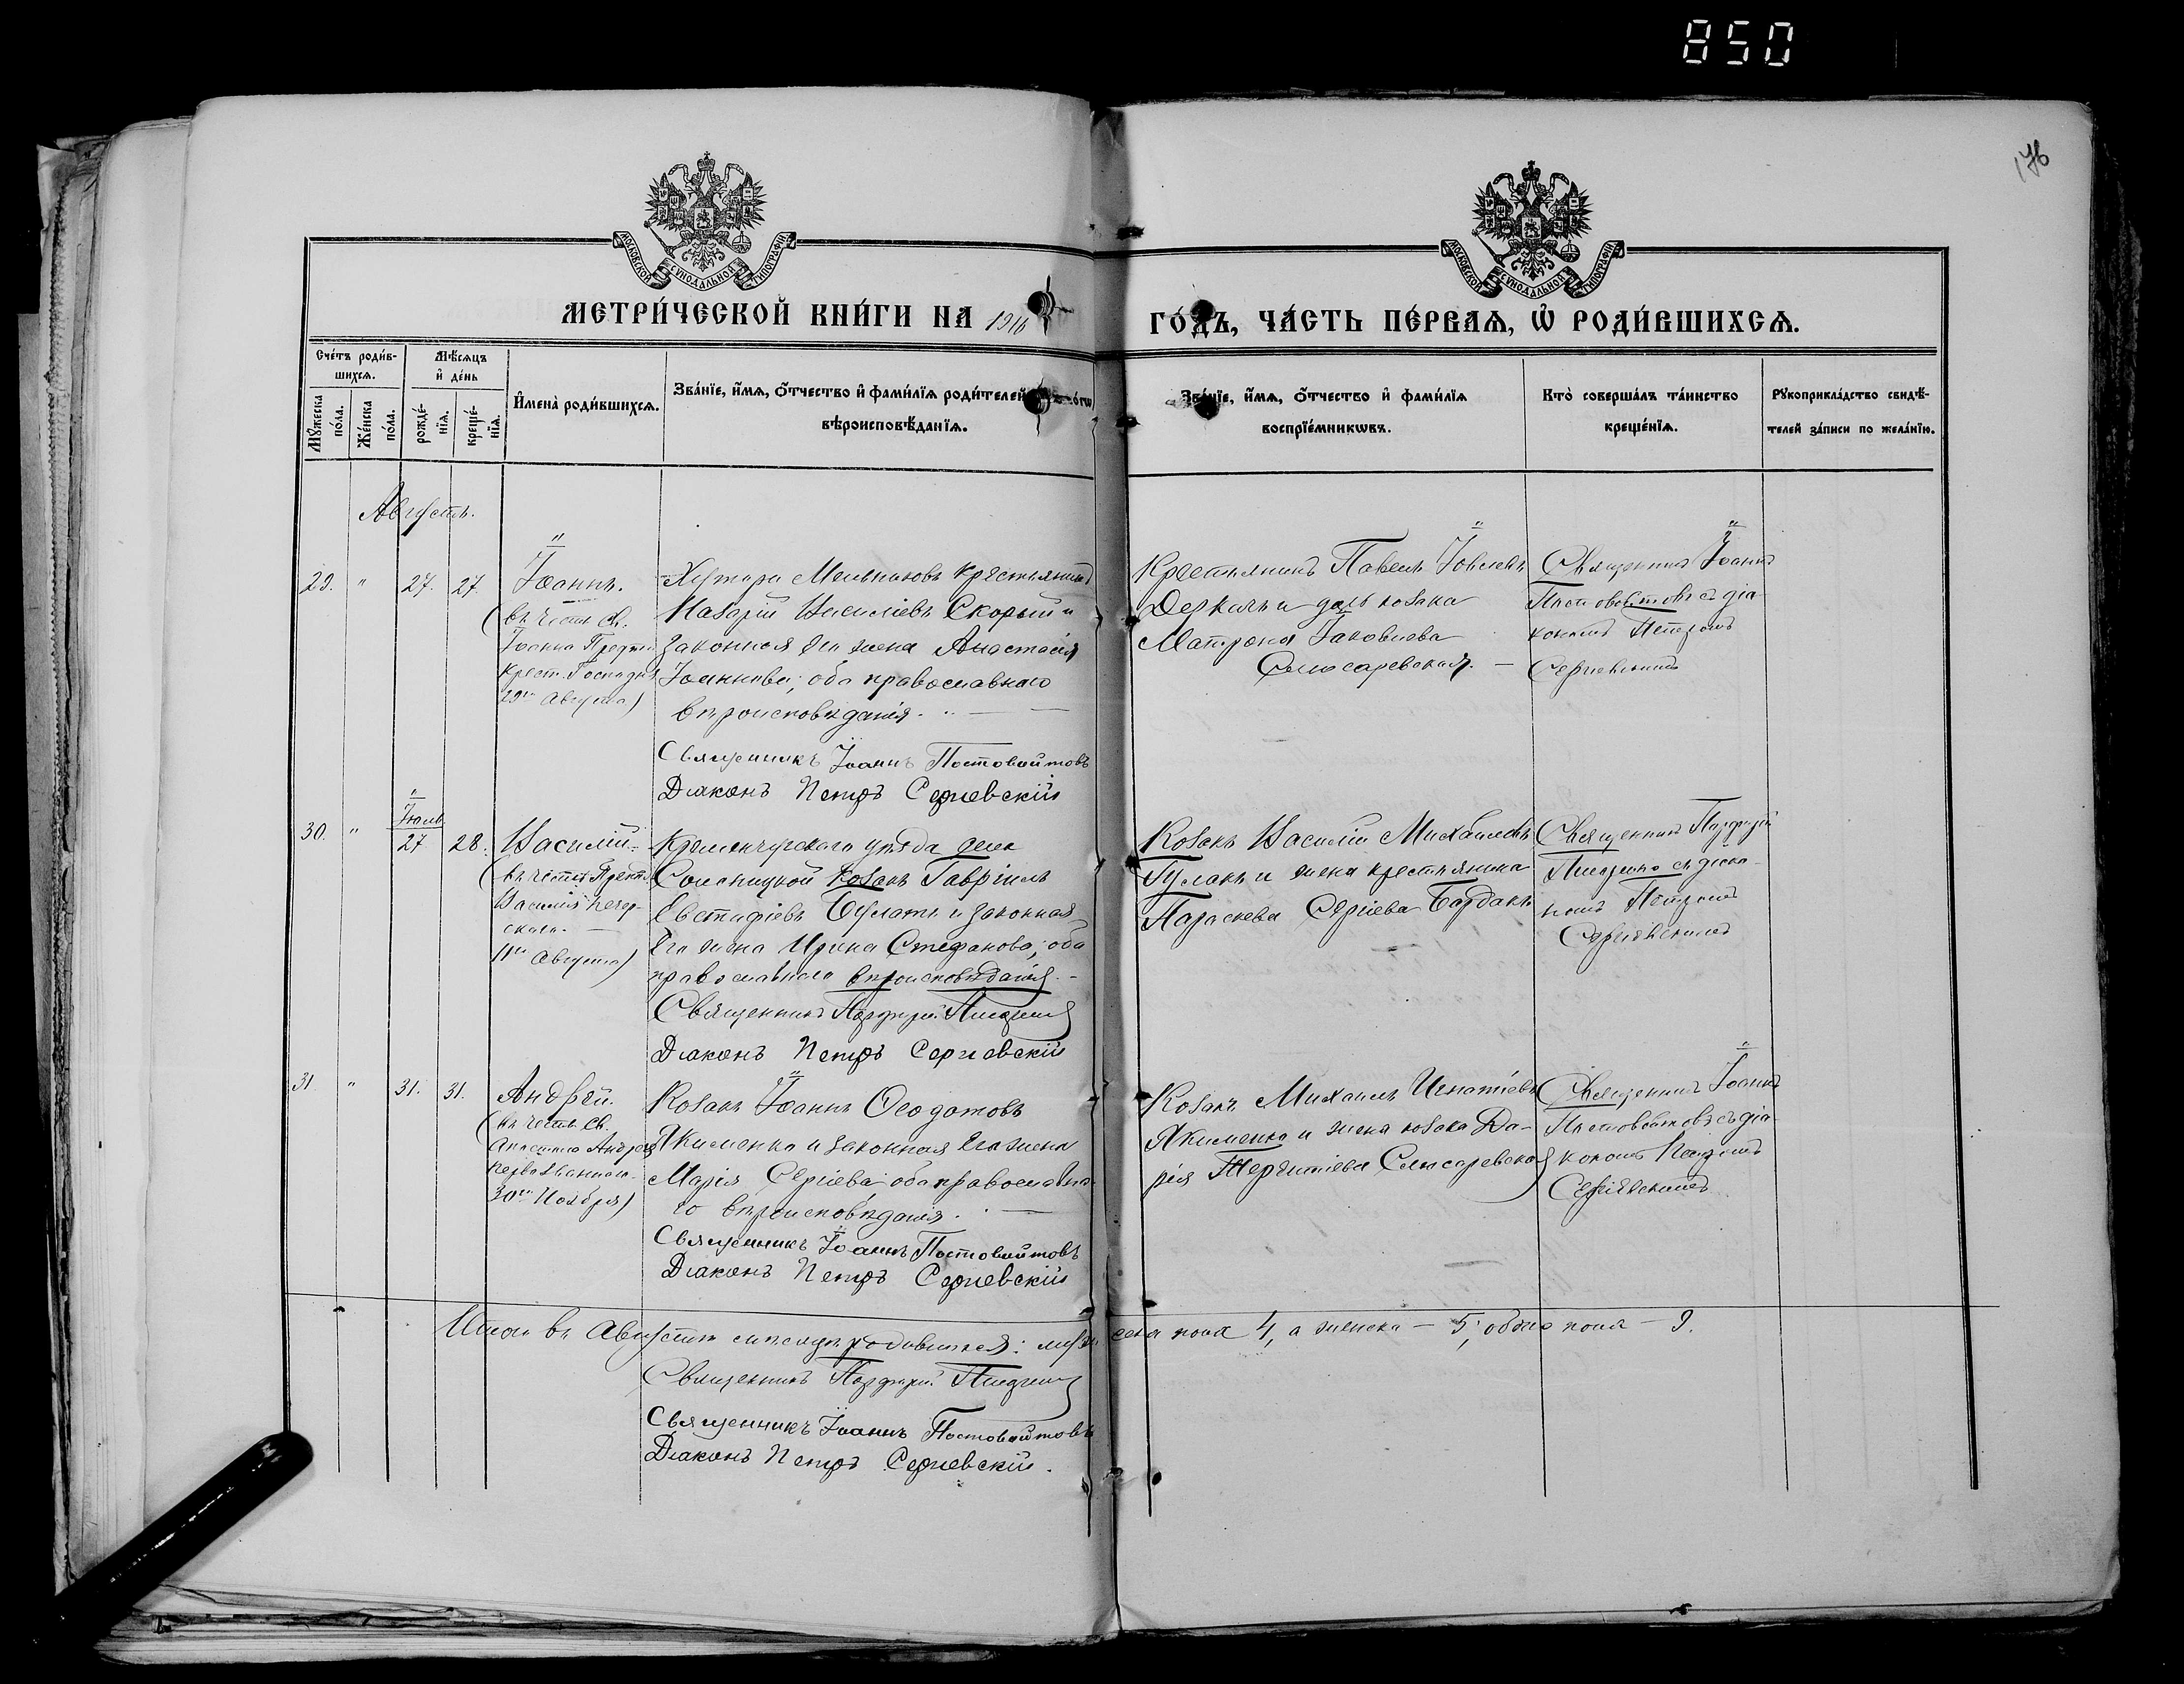 850
176
МОСКОВСКОЙ СѴНОДАЛЬНОЙ ТИПОГРАФІИ
МОСКОВСКОЙ СѴНОДАЛЬНОЙ ТИПОГРАФІИ
МЕТРИ́ЧЕСКОЙ КНИ́ГИ НА 1916
ГО́ДЪ, ЧА́СТЬ ПЕ́РВАѦ, Ѡ҆ РОДИ́ВШИХСѦ.
Сче́тъ роди́в-
шихсѧ.
Мѣ́сѧцъ
и҆ де́нь
Мꙋ́жеска
по́ла.
Же́нска
по́ла.
рожде́-
нїѧ.
креще́-
нїѧ.
И҆мена̀ роди́вшихсѧ.
Зва́нїе, и҆́мѧ, ѻ҆́тчество и҆ фами́лїѧ роди́телей
вѣроисповѣ́данїѧ.
Зва́нїе, и҆́мѧ, ѻ҆́тчество и҆ фами́лїѧ
воспрїе́мникѡвъ.
Кто̀ соверша́лъ та́инство
креще́нїѧ.
Рꙋкоприкла́дство свидѣ́-
телей за́писи по жела́нїю.
Августъ.
29. " 27. 27. Іоаннъ.
(въ честь Св.
Іоанна Предтечи
Крест. Господня
29го Августа)
Хутора Мельниковъ крестьянинъ
Назарій Василіевъ Скорый и
законная его жена Анастасія
Іоаннова; оба православнаго
вѣроисповѣданія.
Священникъ Іоаннъ Постовойтовъ
Діаконъ Петръ Сергіевскій
Крестьянинъ Павелъ Іовлевъ
Деркачъ и дочь козака
Матрона Іаковлева
Слюсаревская.
Священникъ Іоаннъ
Постовойтовъ съ діа-
кономъ Петромъ
Сергіевскимъ
30. " Іюль 27 28. Василій.
(въ честь Препод.
Василія Печер-
скаго.
11го Августа)
Кременчугскаго уѣзда села
козакъ Гавріилъ
Евстафіевъ Булатъ и законная
его жена Ирина Стефанова; оба
православнаго вѣроисповѣданія.
Священникъ Парфирій
Діаконъ Петръ Сергіевскій
Козакъ Василій Михаиловъ
Гулакъ и жена крестьянина
Параскева Сергіева Бардакъ
Священникъ Парфирій
съ діако-
номъ Петромъ
Сергіевскимъ
31. " 31. 31. Андрей.
(въ честь Св.
Апостола Андрея
Первозваннаго.
30го Ноября)
Козакъ Іоаннъ Ѳеодотовъ
Якименко и законная его жена
Марія Сергіева; оба православна-
го вѣроисповѣданія.
Священникъ Іоаннъ Постовойтовъ
Діаконъ Петръ Сергіевскій
Козакъ Михаилъ Игнатіевъ
Якименко и жена козака Да-
рія Терентіева Слюсаревская
Священникъ Іоаннъ
Постовойтовъ съ діа-
кономъ Петромъ
Сергіевскимъ
Итого въ Августѣ мѣсяцѣ родившихся: мужеска пола 4, а женска — 5; обоего пола — 9.
Священникъ Парфирій
Священникъ Іоаннъ Постовойтовъ
Діаконъ Петръ Сергіевскій.